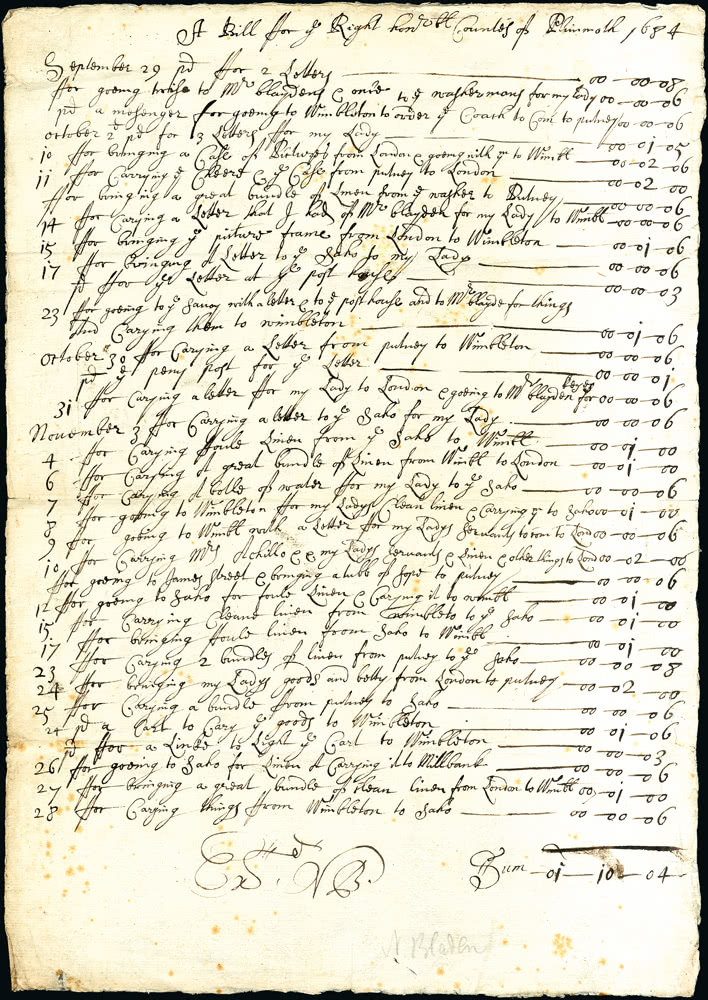 A Bill ffor ye Right honobll Countes of Plimmoth 1684
September 29 pd ffor 2 Letters 00-00-08
ffor goeing twise to Mr blaydens & once to ye washermans for my lady 00-00-06
pd a mesenger ffor goeing to Wimbleton to order ye Coach to Com to putney 00-00-06
october 2d pd for 3 Letters ffor my Lady 00-01-05
10 ffor bringing a Case of Pictures from London & goeing with ym to Wimbl 00-02-06
11 ffor Carrying ye & ye Case from putney to London 00-02-00
ffor bringing a great bundle of Linen from ye washer to Putney 00-00-06
14 ffor Carying a Letter that I had of Mr blayden for my Lady to Wimbl 00-00-06
15 ffor bringing ye picture frame from London to Wimbleton 00-01-06
17 ffor bringing A Letter to ye Saho fo my Lady 00-00-06
pd ffor ye Letter at ye post house 00-00-03
23 ffor goeing to ye Savoy with a letter & to ye post house and to Mr blayde for things
And Carying them to wimbleton 00-01-06
October 30 ffor Carying a Letter from putney to Wimbleton 00-00-06
pd ye peny post for ye Letter 00-00-01
31 ffor Carying a letter ffor my Lady to London & goeing to Mr blayden for 00-00-06
November 3 ffor Carying a letter to ye Saho for my Lady 00-00-06
4 ffor Carying foule Linen from ye Saho to Wimbl 00-01-00
6 ffor Carying A great bundle of Linen from Wimbl to London 00-01-00
7 ffor Carying A botle of water ffor my Lady to ye Saho 00-00-06
8 ffor goeing to Wimbleton ffor my Ladys Clean linen & Carying ym to Saho 00-01-00
9 ffor goeing to Wimbl with a Letter for my Ladys servants to com to Lond 00-00-06
10 ffor Carrying Mrs & my Ladys servants & Linen & other things to Lond 00-02-00
ffor goeing to James street & bringing a tubb of sope to putney 00-00-06
12 ffor goeing to Saho for foule Linen & Carying it to wimbl 00-01-00
15 ffor Carrying Cleane linen from wimbleto to ye Saho 00-01-00
17 ffor bringing foule linen from Saho to Wimbl 00-01-00
23 ffor Carying 2 bundles of linen from putney to ye Saho 00-00-08
24 ffor bringing my Ladys goods and betty from London to putney 00-02-00
25 ffor Carying a bundle from putney to Saho 00-00-06
24 pd a Cart to Cary ye goods to Wimbleton 00-01-06
pd ffor a Linke to Light ye Cart to Wimbleton 00-00-03
26 ffor goeing to Saho for Linen & Carying it to Millbank 00-00-06
27 ffor bringing a great bundle of Clean linen from London to Wimbl 00-01-00
28 ffor Carying things ffrom Wimbleton to Saho 00-00-06
Sum 01-10-04
Exd NB
N Bladen